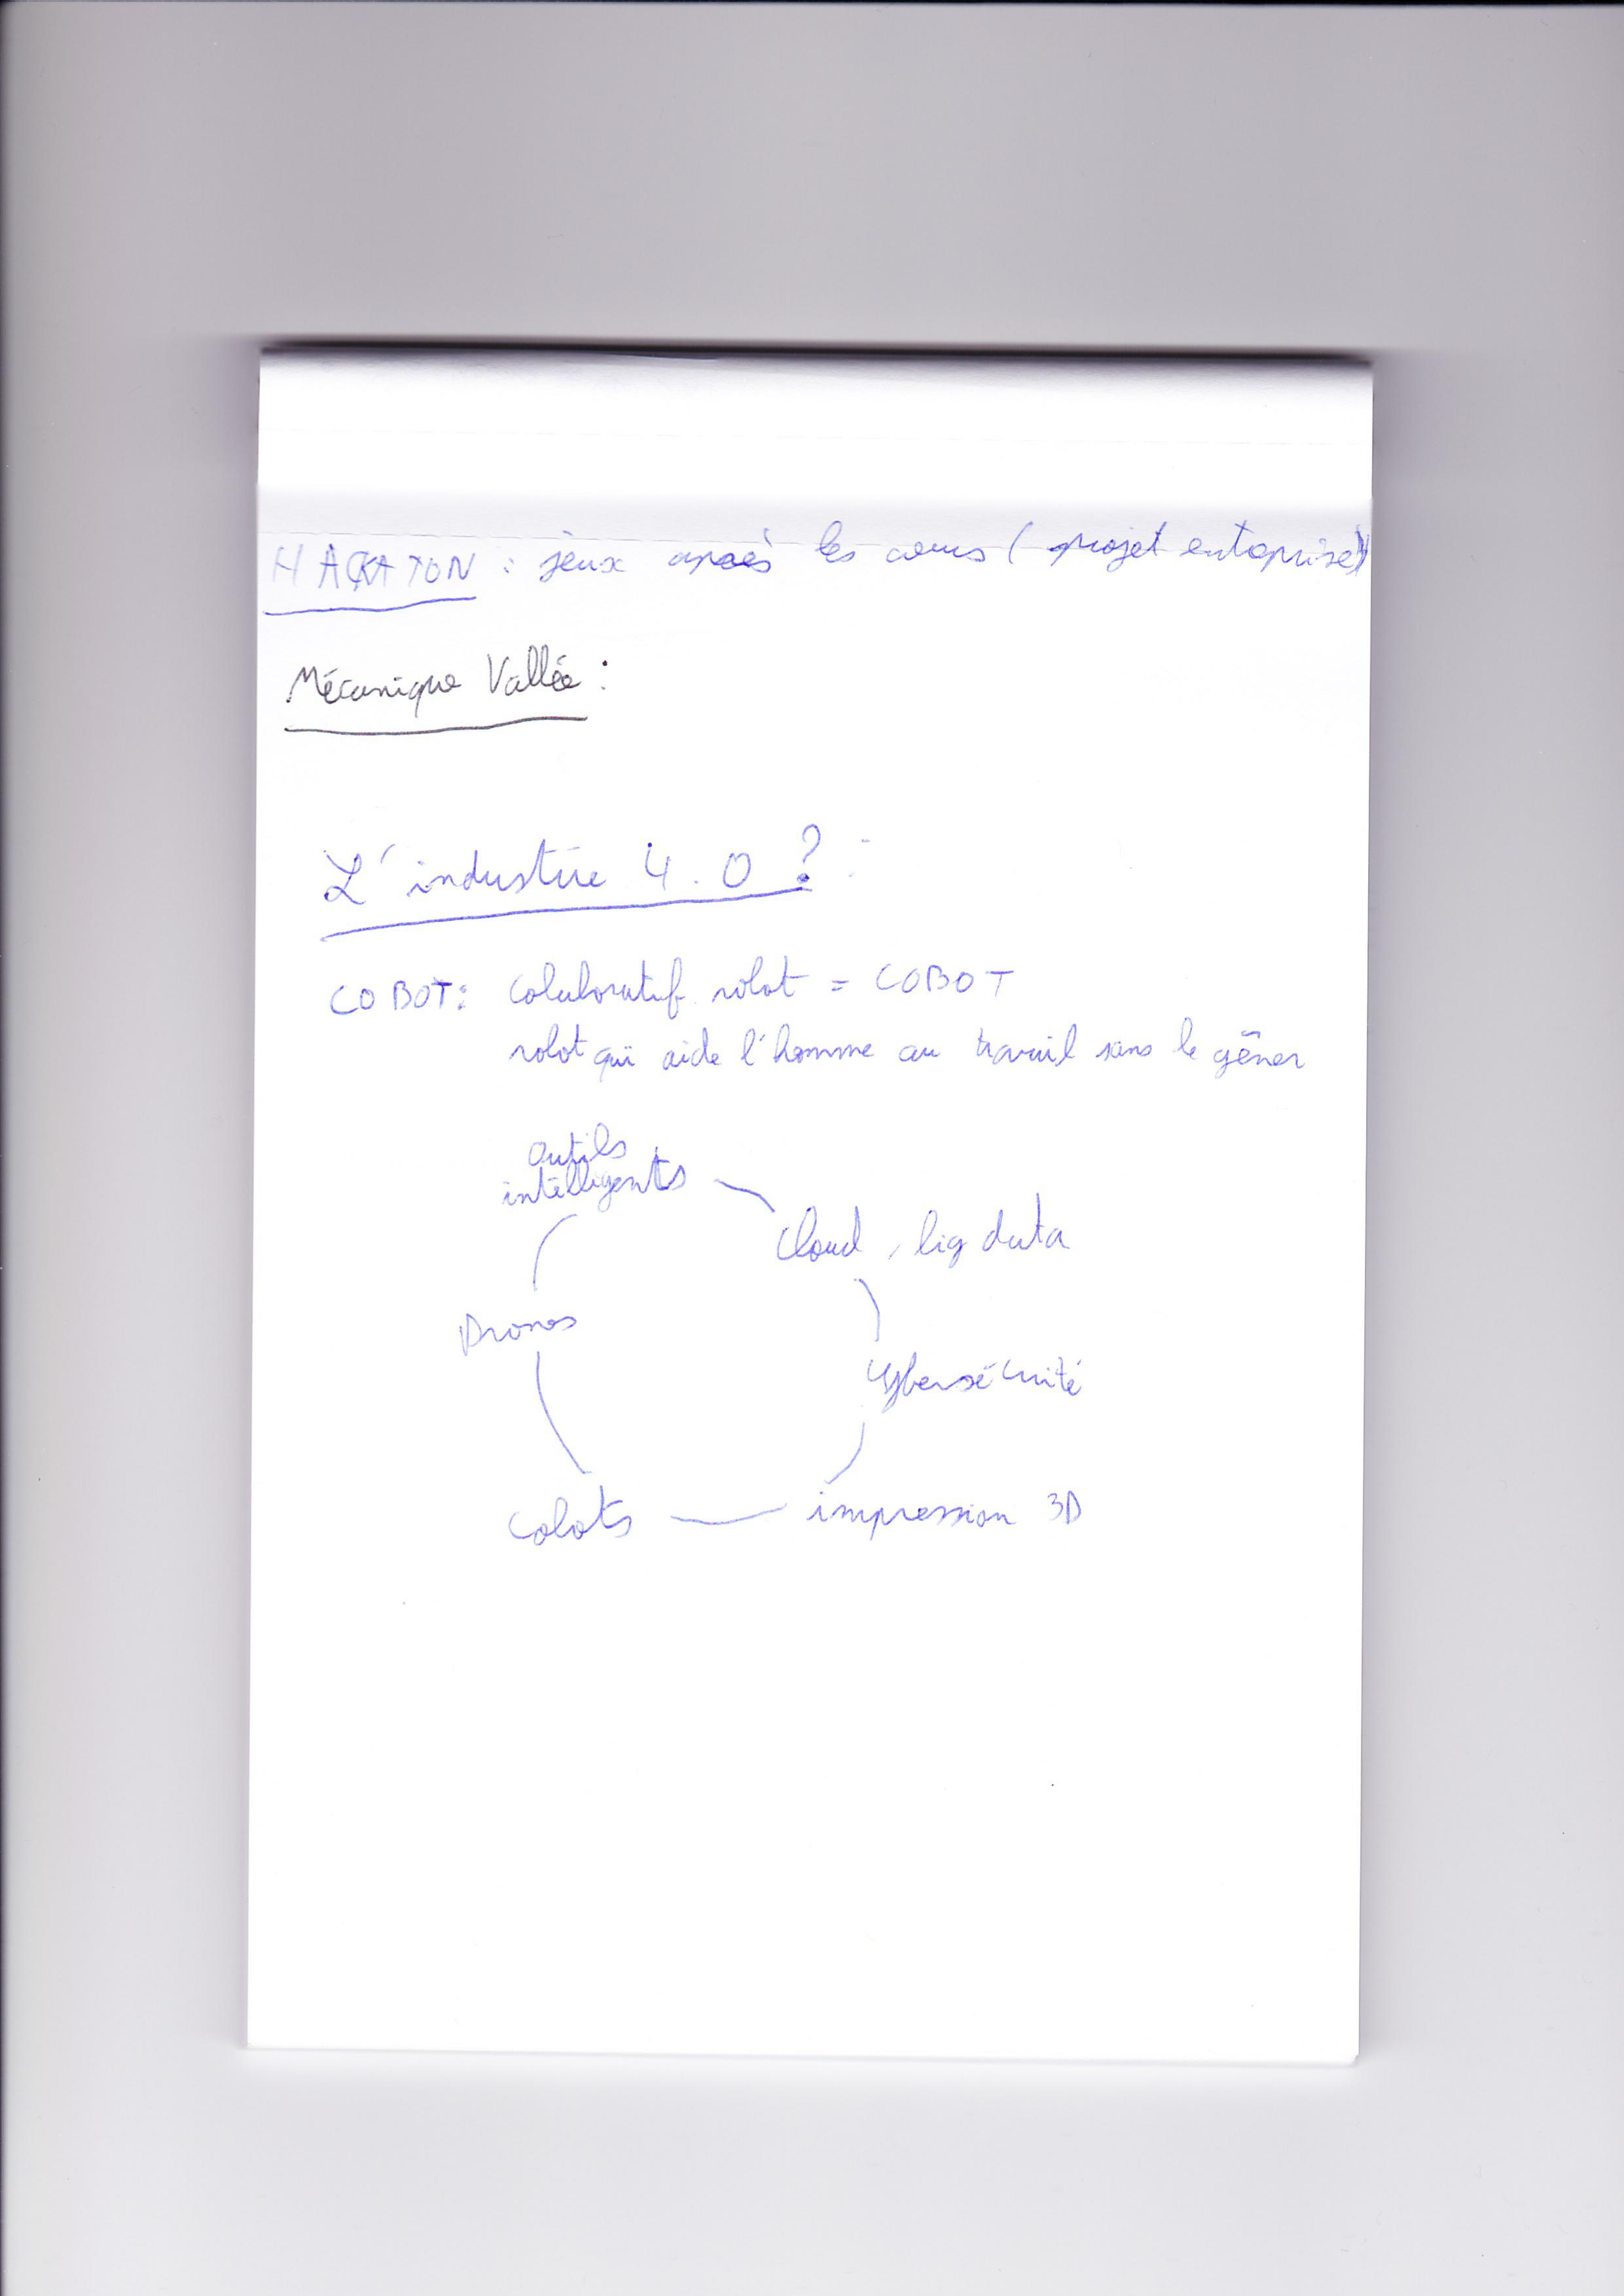 HACKATON : jeux après les cours (projet enteprise)
Mécanique Vallée :
L'industrie 4.0 ? :
COBOT : Colaboratif robot = COBOT
robot qui aide l'homme au travail sans le gêner
Outils
intelligents
Cloud, big data
Drones
Cybersécurité
Cobots
impression 3D